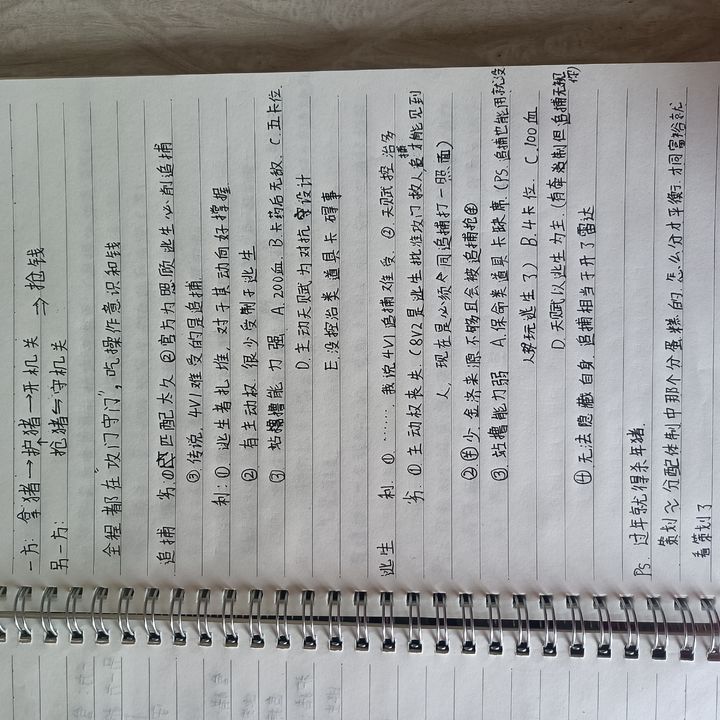 一方: 拿猪→护猪→开机关 → 抢钱
另一方: 抢猪与守机关
全程都在“攻门守门”,吃操作意识和钱
追捕 劣: ① 匹配太久 ②官方为照顾逃生必削追捕
③ 传说, 4V1难受的是追捕.
利: ① 逃生者扎堆, 对于其动向好掌握
② 有主动权 很少受制于逃生
③ 站撸能力强 A.200血. B.卡药后无敌. C.五卡位.
D.主动天赋为对抗 设计
E.没控治类道具卡碍事
逃生 利. ① …… 我说4V1追捕难受. ② 天赋控治多
劣: ① 主动权丧失 (8V2是逃生批准攻门救人追捕才能见到
人, 现在是必须 同追捕打一照面)
② 少 金条来源不够且会被追捕抢
③ 站撸能力弱 A.保命类道具卡缺席 (PS.追捕也能用就没
人玩逃生3) B.4卡位. C.100血
D.天赋以逃生为主. (有牵制但追捕无视
你)
④ 无法隐藏自身. 追捕相当于开了雷达
Ps. 过年就得杀年猪.
策划≈分配体制中那个分蛋糕的. 怎么分才平衡. 共同富裕就
看策划了